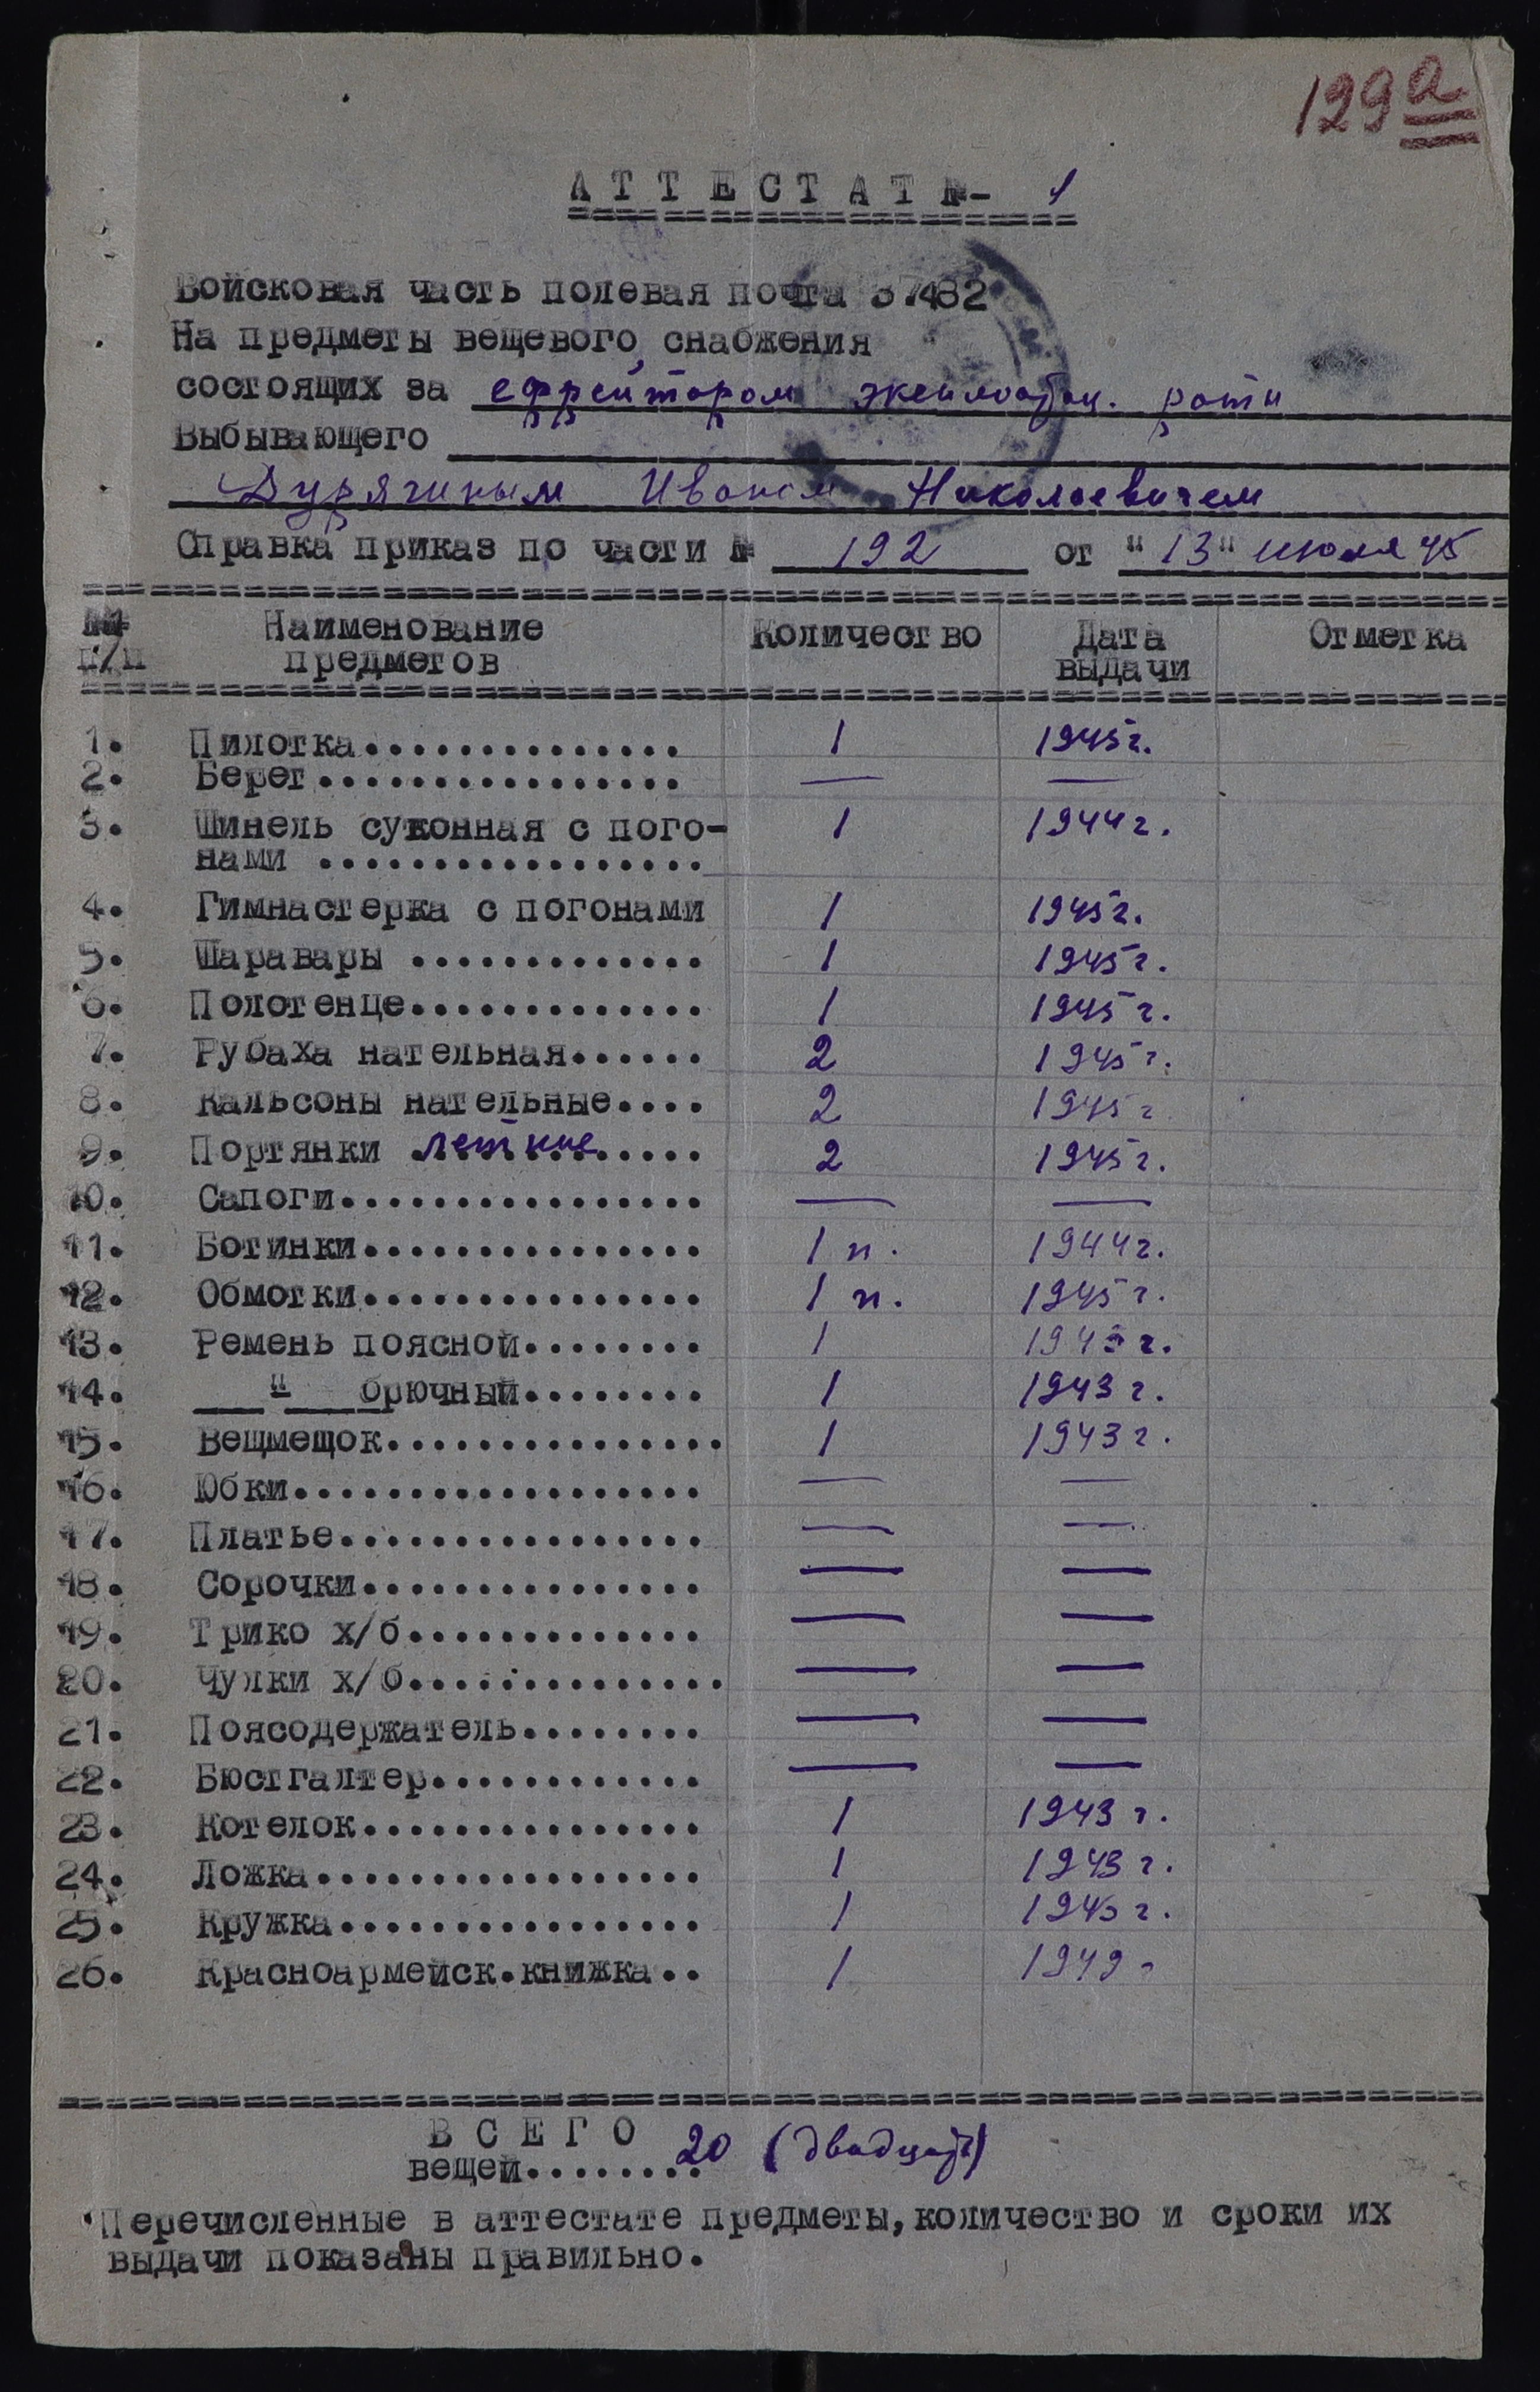 129а
АТТЕСТАТ №- 1
Войсковая часть полевая почта 37482
На предметы вещевого снабжения
состоящих за ефрейтором эксплоатац. роти
Выбывающего
Дурягиным Иваном Николаевичем
Справка приказ по части № 192 от "13" июля 45
№№ Наименование Количество Дата Отметка
п/п предметов выдачи
1. Пилотка............... 1 1945г.
2. Берет................ — —
3. Шинель суконная с пого- 1 1944г.
нами .................
4. Гимнастерка с погонами 1 1945г.
5. Шаравары ............. 1 1945г.
6. Полотенце............. 1 1945г.
7. Рубаха нательная...... 2 1945г.
8. Кальсоны нательные.... 2 1945г
9. Портянки летние..... 2 1945г.
10. Сапоги................ — —
11. Ботинки............... 1 п. 1944г.
12. Обмотки............... 1 п. 1945г.
13. Ремень поясной........ 1 г.
14. " брючный........ 1 1943г.
15. Вещмещок............... 1 1943г.
16. Юбки.................. — —
17. Платье................ — —
18. Сорочки............... — —
19. Трико х/б............. — —
20. Чулки х/б.............. — —
21. Поясодержатель........ — —
22. Бюстгалтер............ — —
23. Котелок............... 1 1943г.
24. Ложка................. 1 1943г.
25. Кружка................ 1 г.
26. Красноармейск.книжка.. 1
ВСЕГО
вещей........ 20 (двадцать)
Перечисленные в аттестате предметы,количество и сроки их
выдачи показаны правильно.